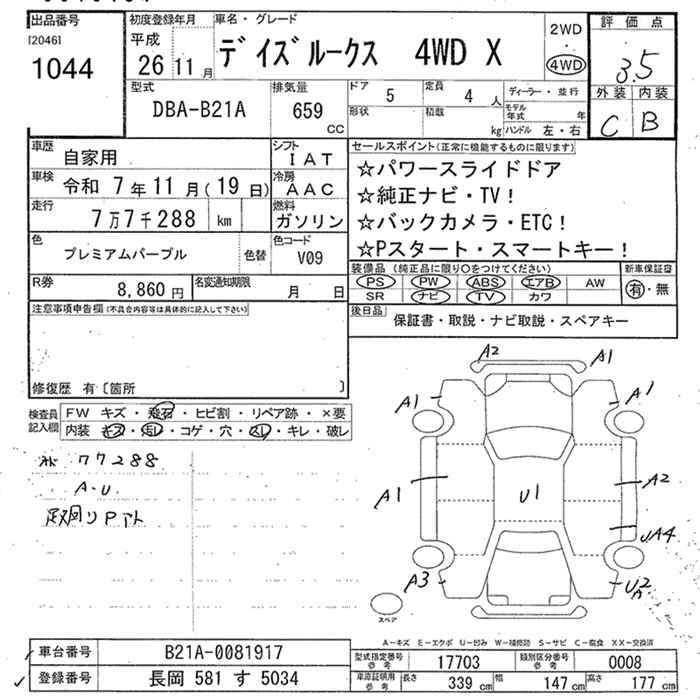 出品番号
[2046]
1044
初度登録年月
平成
26 11 月
車名・グレード
デイズルークス 4WD X
2WD
・
4WD
評価点
3.5
外装 内装
C B
型式
DBA-B21A
排気量
659
CC
ドア 5
定員 4 人
形状
積載 kg
ディーラー・並行
モデル年式 年
ハンドル 左・右
車歴 自家用
シフト IAT
車検 令和 7 年 11 月 ( 19 日)
冷房 AAC
走行 7万7千288 km
燃料 ガソリン
色 プレミアムパープル 色替
色コード V09
R券 8,860 円
名変通知期限 月 日
セールスポイント(正常に機能するものに限ります)
☆パワースライドドア
☆純正ナビ・TV!
☆バックカメラ・ETC!
☆Pスタート・スマートキー!
装備品 (純正品に限り○をつけてください)
新車保証書
PS PW ABS エアB AW
SR ナビ TV カワ
有・無
後日品
保証書・取説・ナビ取説・スペアキー
注意事項申告欄(不具合内容等は具体的に記入して下さい)
修復歴 有〔箇所 〕
検査員記入欄
FW キズ・飛石・ヒビ割・リペア跡・×要
内装 キズ・汚レ・コゲ・穴・スレ・キレ・破レ
77288
A-U
A2
A1
A1
A1
A1
U1
A2
A3
スペア
A-キズ E-エクボ U-凹み W-補修跡 S-サビ C-腐食 XX-交換済
車台番号 B21A-0081917
登録番号 長岡 581 す 5034
型式指定番号 参考 17703
類別区分番号 参考 0008
車庫証明用 参考
長さ 339 cm
幅 147 cm
高さ 177 cm